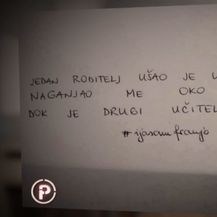 JEDAN RODITELJ UŠAO JE U
NAGANJAO ME OKO
DOK JE DRUGI UČITEL
#jasamfranjo
P